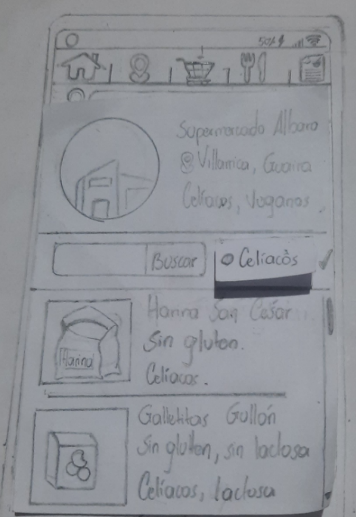 50%
Supermercado Albora
Villarrica, Guaira
Celíacos, Veganos
Buscar
Celiacos
Harina San Cesar
Sin gluten.
Celiacos.
Harina
Galletitas Gullón
Sin gluten, sin lactosa
Celiacos, lactosa